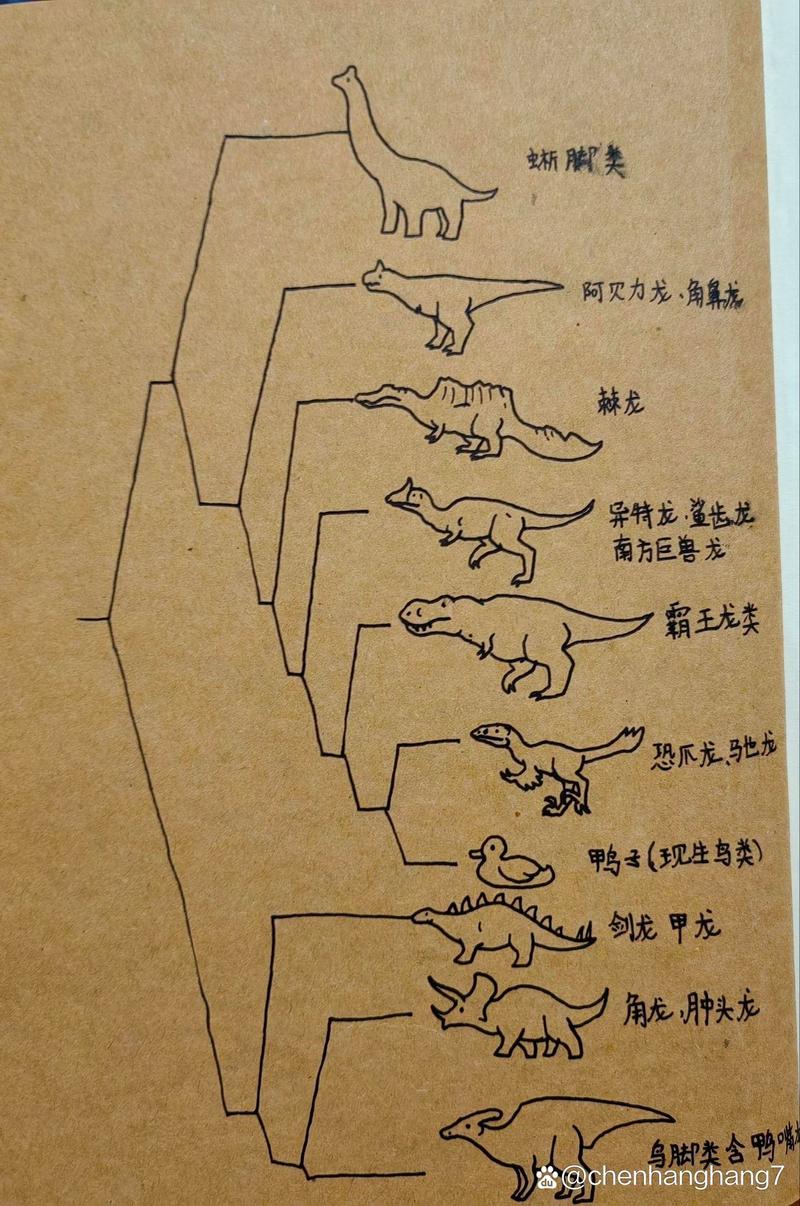 蜥脚类
阿贝力龙、角鼻龙
棘龙
异特龙、鲨齿龙
南方巨兽龙
霸王龙类
恐爪龙、驰龙
鸭子(现生鸟类)
剑龙 甲龙
角龙、肿头龙
鸟脚类含鸭嘴龙
du @chenhanghang7